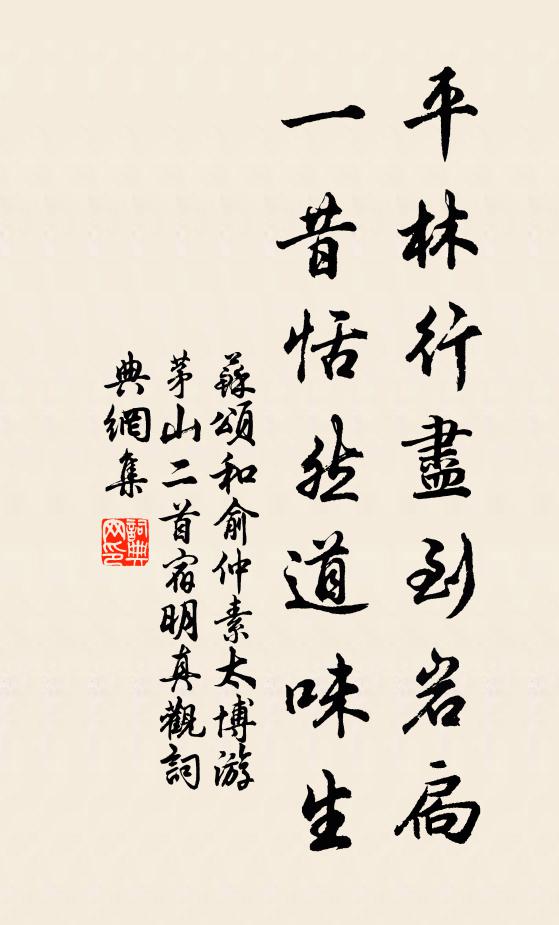 平林行盡到岩扃
一昔恬然道味生
蘇頌和俞仲素太博游
茅山二首宿明真觀詞
典網集
詞典
网印